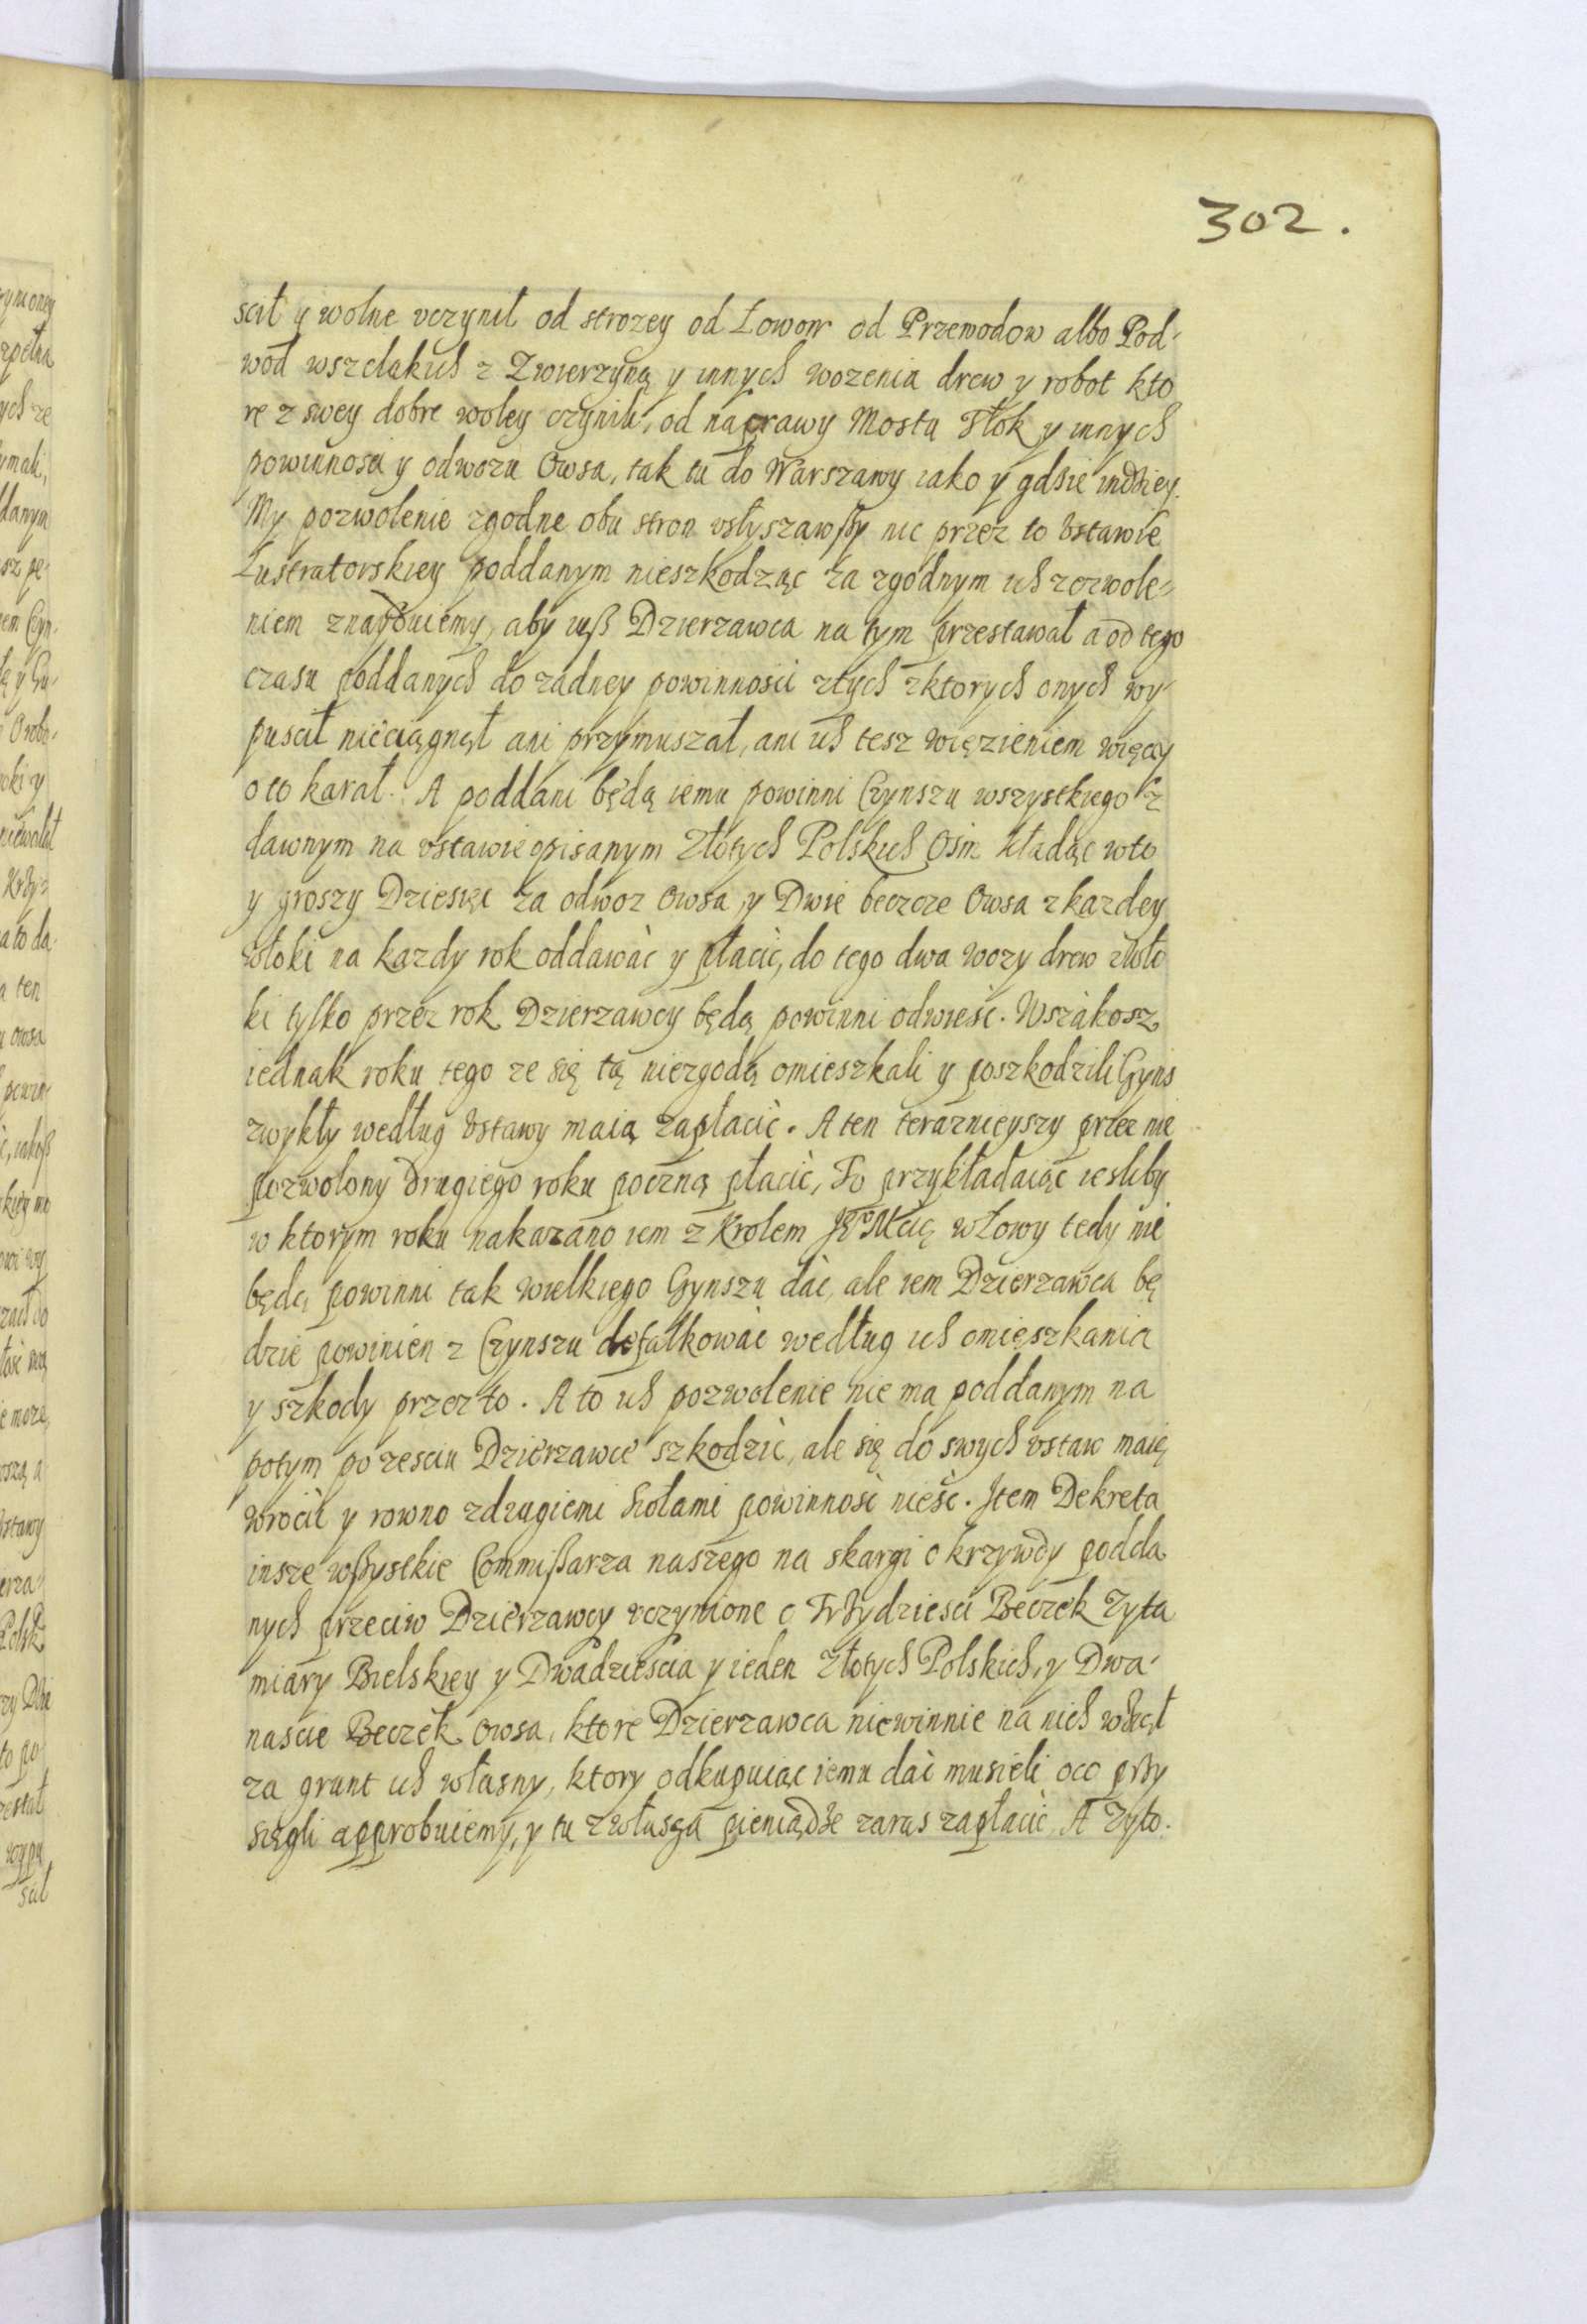 302.
scił y wolne vczynił od strozey od Łowow od Przewodow albo Pod-
wod wszelakich z Zwierzyną y innych wozenia drew y robot kto
re z swey dobre woley czynili, od naprawy Mostu Tłok y innych
powinnosci y odwozu Owsa, tak tu do Warszawy iako y gdzie indziey.
My pozwolenie zgodne obu stron vsłyszawszy nic przez to Vstawie
Lustratorskiey poddanym nieszkodząc za zgodnym ich zezwole-
niem znayduiemy, aby iusz Dzierzawca na tym przestawał a od tego
czasu poddanych do zadney powinnosci ztych zktorych onych wy-
puscił nieciągnął ani przymuszał, ani ich tesz więzieniem więcy
oto karał. A poddani będą iemu powinni Czynszu wszystkiego z
dawnym na vstawie opisanym Złotych Polskich Osm kładąc wto
y groszy Dziesięc za odwoz Owsa y Dwie beczce Owsa zkazdey
włoki na kazdy rok oddawać y płacić, do tego dwa wozy drew zwło
ki tylko przez rok Dzierzawcy będą powinni odwieść. Wszakosz
iednak roku tego ze się tą niezgodą omieszkali y poszkodzili Czyns
zwykły według Vstawy maią zapłacić. A ten teraznieyszy przez nie
pozwolony drugiego roku poczną płacić, To przykładaiąc iesliby
w ktorym roku nakazano iem z Krolem JE° Mcią w Łowy tedy nie
będą powinni tak wielkiego Czynszu dać, ale iem Dzierzawca bę
dzie powinien z Czynszu defalkować według ich omieszkania
y szkody przez to. A to ich pozwolenie nie ma poddanym na
potym po zesciu Dzierzawce szkodzić, ale się do swych vstaw maią
wrocić y rowno zdrugiemi siołami powinność nieść. Item Dekreta
insze wszystkie Commissarza naszego na skargi o krzywdy podda
nych przeciw Dzierzawcy vczynione o Trzydziesci Beczek Zyta
miary Bielskiey y Dwadziescia y ieden Złotych Polskich, y Dwa-
nascie Beczek Owsa, ktore Dzierzawca niewinnie na nich wziął
za grunt ich własny, ktory odkupuiąc iemu dać musieli oco przy
sięgli approbuiemy, y tu zwłasza pieniądze zaraz zapłacić A Zyto.